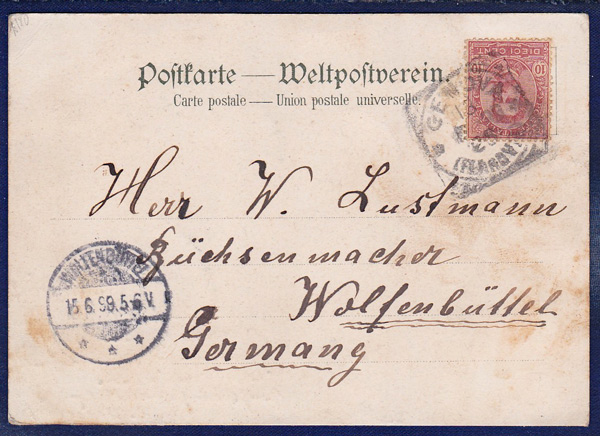 Postkarte — Weltpostverein.
Carte postale — Union postale universelle.
DIECI CENT.
10
GENOVA
(FLANGRO
Herr W. Lustmann
Büchsenmacher
Wolfenbüttel
Germany
WOLFENBÜTTEL
15.6.99.5-6V.